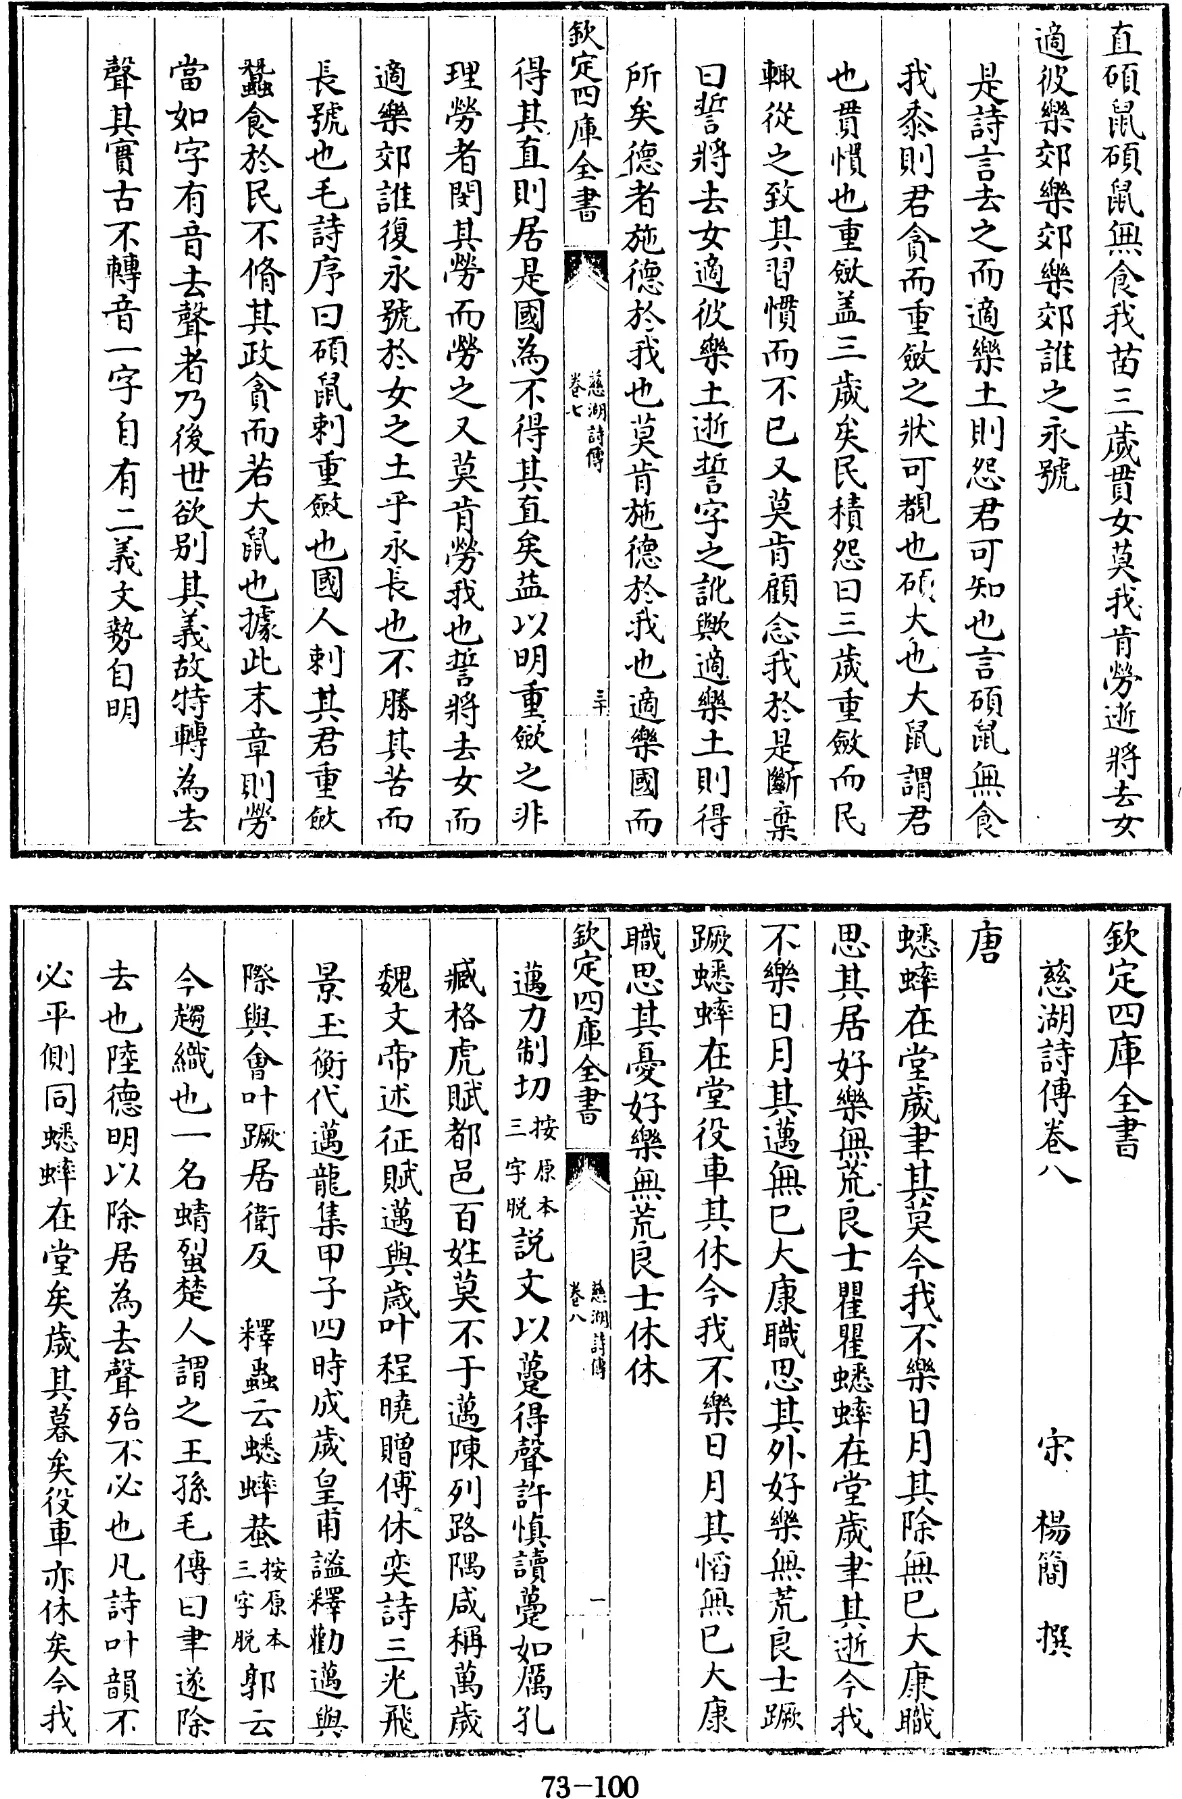 直碩鼠碩鼠無食我苗三歲貫女莫我肯勞逝將去女
適彼樂郊樂郊樂郊誰之永號
是詩言去之而適樂土則怨君可知也言碩鼠無食
我黍則君貪而重斂之狀可覩也碩大也大鼠謂君
也貫慣也重斂蓋三歲矣民積怨曰三歲重斂而民
輒從之致其習慣而不已又莫肯顧念我於是斷棄
曰誓將去女適彼樂土逝誓字之訛歟適樂土則得
所矣德者施德於我也莫肯施德於我也適樂國而
欽定四庫全書
慈湖詩傳
卷七
三十
得其直則居是國為不得其直矣益以明重斂之非
理勞者閔其勞而勞之又莫肯勞我也誓將去女而
適樂郊誰復永號於女之土乎永長也不勝其苦而
長號也毛詩序曰碩鼠刺重斂也國人刺其君重斂
蠶食於民不脩其政貪而若大鼠也據此末章則勞
當如字有音去聲者乃後世欲别其義故特轉為去
聲其實古不轉音一字自有二義文勢自明
欽定四庫全書
慈湖詩傳卷八
宋 楊簡 撰
唐
蟋蟀在堂歲聿其莫今我不樂日月其除無已大康職
思其居好樂無荒良士瞿瞿蟋蟀在堂歲聿其逝今我
不樂日月其邁無已大康職思其外好樂無荒良士蹶
蹶蟋蟀在堂役車其休今我不樂日月其慆無已大康
職思其憂好樂無荒良士休休
欽定四庫全書
慈湖詩傳
卷八
一
邁力制切按原本三字脱說文以蠆得聲許慎讀蠆如厲孔
臧格虎賦都邑百姓莫不于邁陳列路隅咸稱萬歲
魏文帝述征賦邁與歲叶程曉贈傅休奕詩三光飛
景玉衡代邁龍集甲子四時成歲皇甫謐釋勸邁與
際與會叶蹶居衛反 釋蟲云蟋蟀蛬按原本三字脱郭云
今趨織也一名蜻蛚楚人謂之王孫毛傳曰聿遂除
去也陸德明以除居為去聲殆不必也凡詩叶韻不
必平側同蟋蟀在堂矣歲其暮矣役車亦休矣今我
73-100